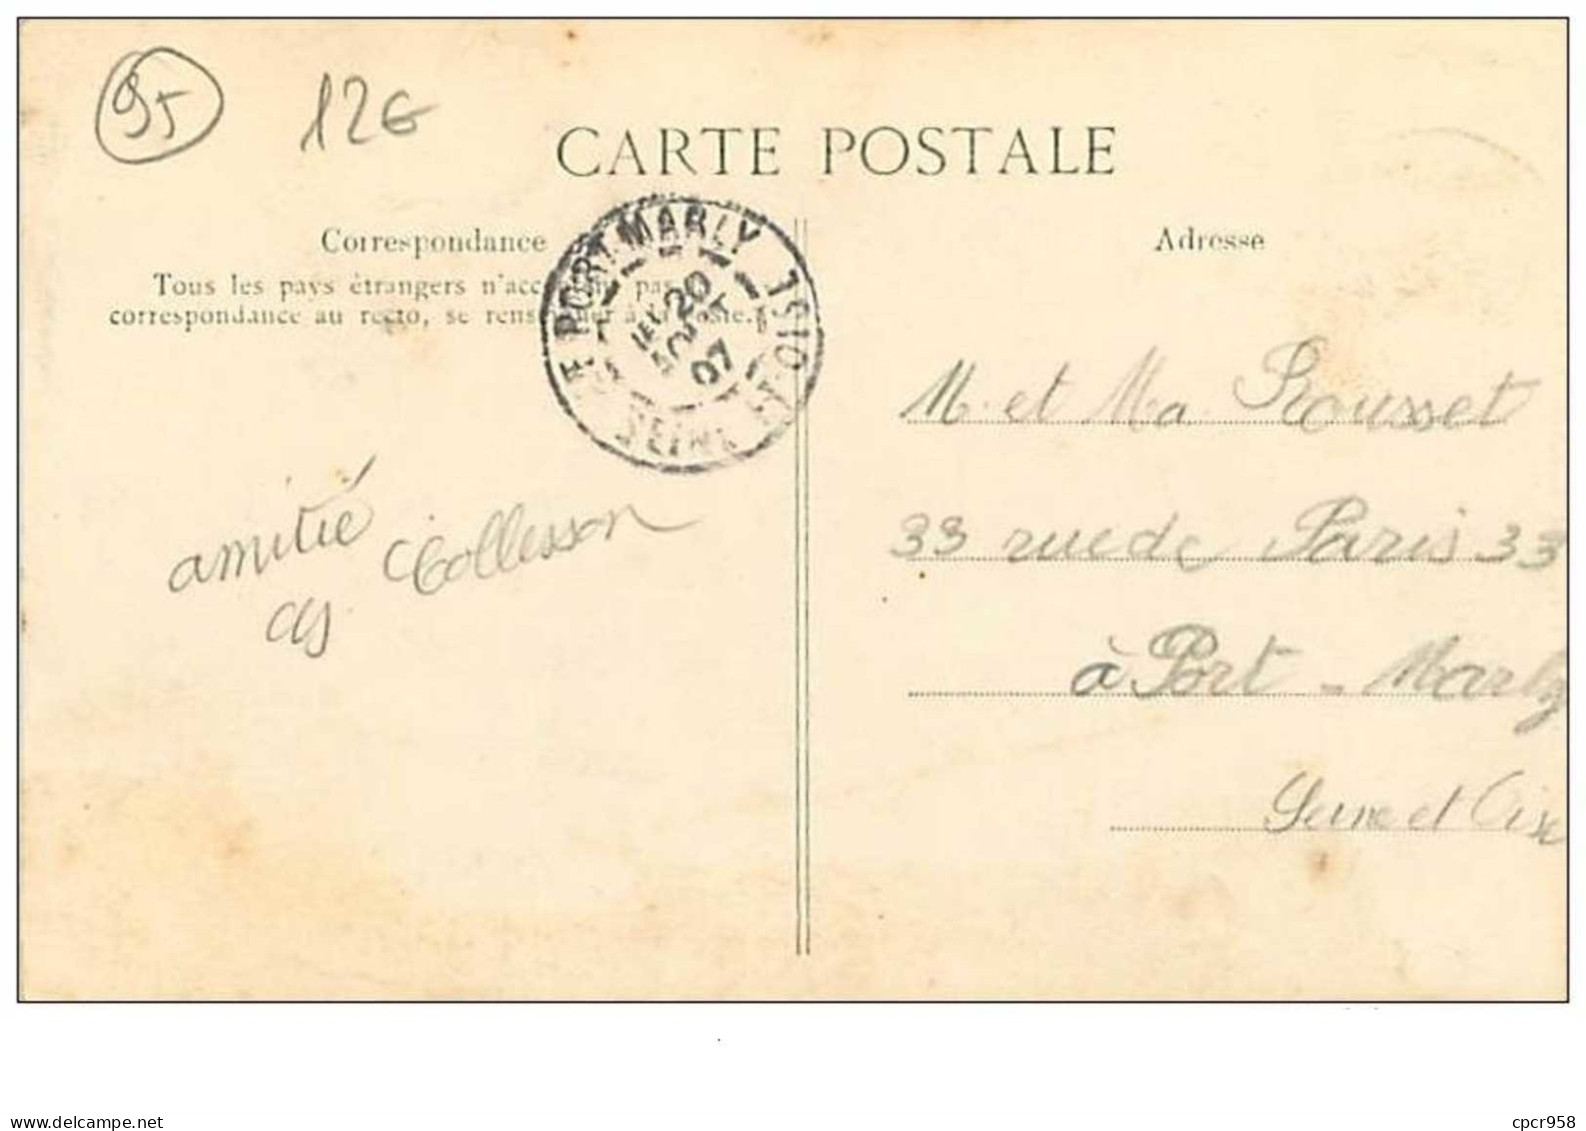 95 12€
CARTE POSTALE
Correspondance
Tous les pays étrangers n'acc pas
correspondance au recto, se rens à la Poste.
LE PORT-MARLY
20
AOUT
07
SEINE ET OISE
amitié
Collesson
Adresse
M. et Ma. Rousset
33 rue de Paris 33
à Port - Marly
Seine et Oise
www.delcampe.net
cpcr958